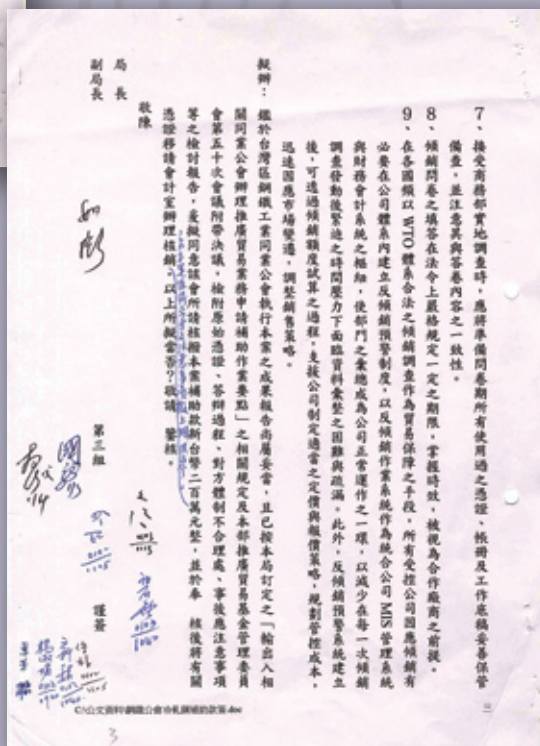 7、接受商務部實地調查時，應將準備問卷期所有使用過之憑證、帳冊及工作底稿妥善保管
備查，並注意其與答卷內容之一致性。
8、傾銷問卷之填答在法令上嚴格規定一定之期限，掌握時效，被視為合作廠商之前提。
9、在各國頻以 WTO 體系合法之傾銷調查作為貿易保障之手段，所有受控公司因應傾銷有
必要在公司體系內建立反傾銷預警制度，以反傾銷作業系統作為統合公司 MIS 管理系統
與財務會計系統之樞紐，使部門之彙總成為公司正常運作之一環，以減少在每一次傾銷
調查發動後緊迫之時間壓力下面臨資料彙整之困難與疏漏。此外，反傾銷預警系統建立
後，可透過傾銷額度試算之過程，支援公司制定適當之定價與報價策略，規劃管控成本，
迅速因應市場變遷，調整銷售策略。
擬辦：鑑於台灣區鋼鐵工業同業公會執行本案之成果報告尚屬妥當，且已按本局訂定之「輸出入相
關同業公會辦理推廣貿易業務申請補助作業要點」之相關規定及本部推廣貿易基金管理委員
會第五十次會議附帶決議，檢附原始憑證、答辯過程、對方體制不合理處、事後應注意事項
等之檢討報告，爰擬同意該會所請核撥本案補助款新台幣二百萬元整，並於奉　核後將有關
憑證移請會計室辦理核銷。以上所擬當否？敬請　鑒核。
敬陳
局　長
副局長
第三組
謹簽
C:\公文資料\鋼鐵公會冷軋鋼補助款簽.doc
三
3